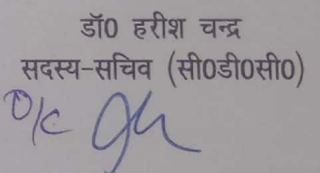 डॉ0 हरीश चन्द्र
सदस्य-सचिव (सी0डी0सी0)
O/c